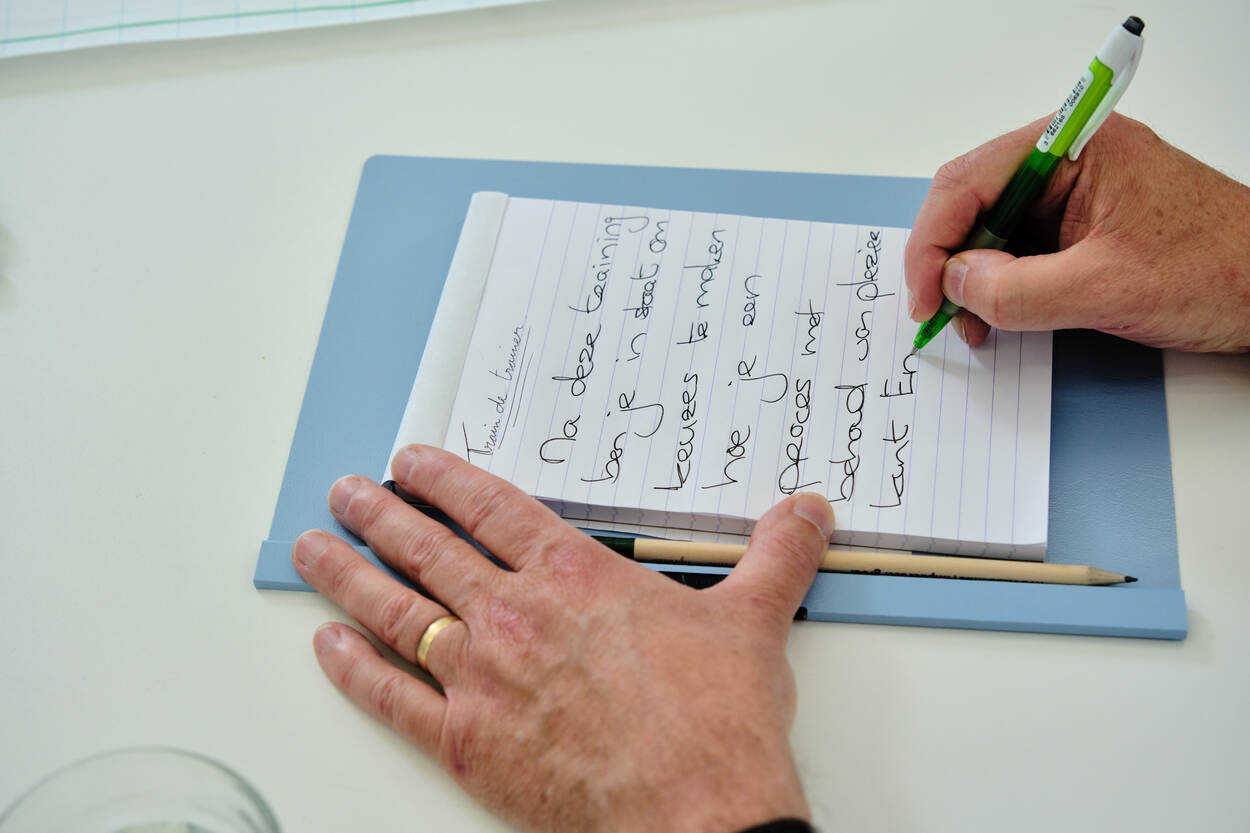 Train de trainer
Na deze training
ben je in staat om
keuzes te maken
hoe je een
proces met
behoud van plezier
kunt En